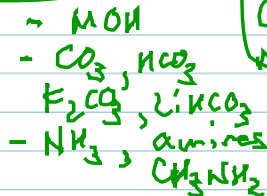 - MOH
- CO3, HCO3
K2CO3, LiHCO3
- NH3, amines
CH3NH2